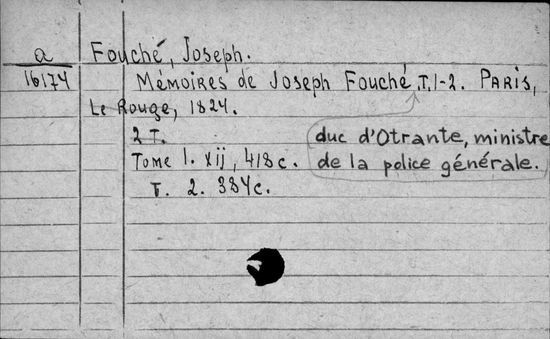 a
16174
Fouché, Joseph.
Mémoires de Joseph Fouché. T. 1-2. Paris,
Le Rouge, 1824.
2 T.
duc d'Otrante, ministre
Tome 1. xij, 418 c.
de la police générale.
T. 2. 384 c.